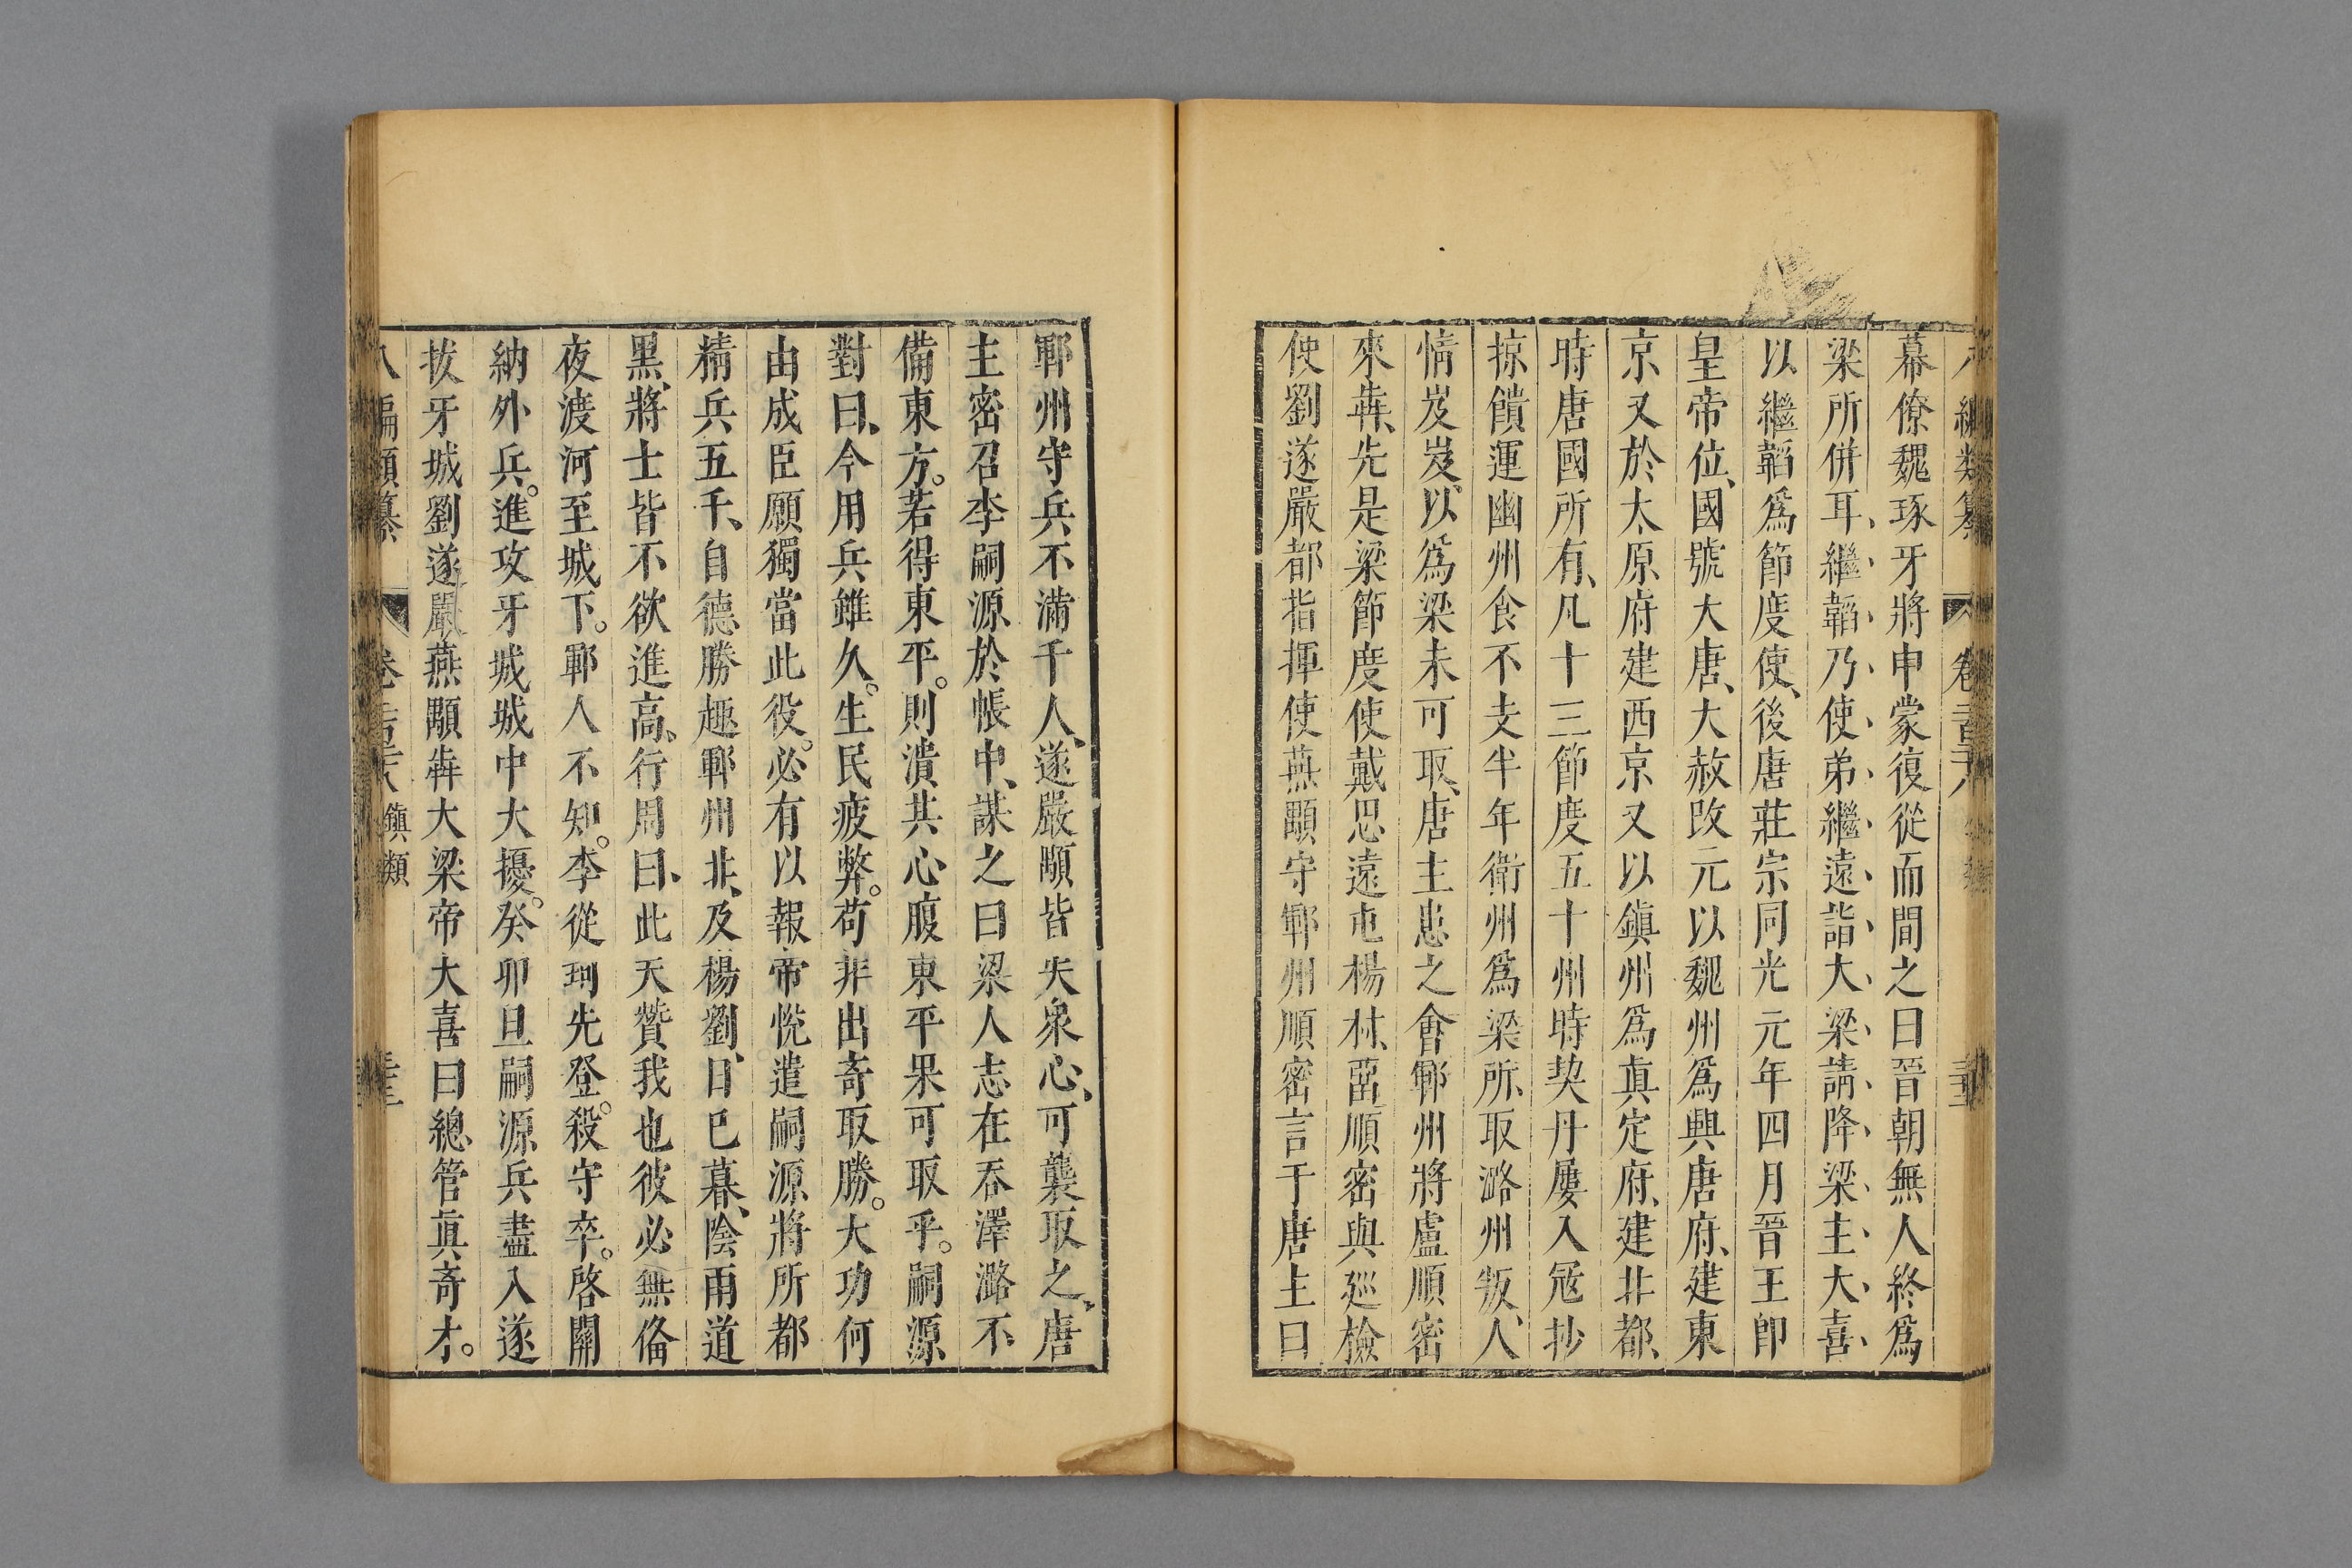 幕僚魏琢牙將申蒙復從而間之曰晉朝無人終爲
梁所併耳、繼韜乃使弟繼遠詣大梁請降梁主大喜
以繼韜爲節度使、後唐莊宗同光元年四月晉王卽
皇帝位、國號大唐、大赦改元以魏州爲興唐府、建東
京又於太原府建西京又以鎭州爲真定府、建北都、
時唐國所有、凡十三節度五十州時契丹屢入冦抄
掠饋運幽州食不支半年衛州爲梁所取潞州叛、人
情岌岌、以爲梁未可取、唐主患之會鄆州將盧順密
來犇、先是梁節度使戴思遠屯楊村、畱順密與巡檢
使劉遂嚴都指揮使燕顒守鄆州順密言于唐主曰
鄆州守兵不滿千人、遂嚴顒皆失衆心、可襲取之、唐
主密召李嗣源於帳中、謀之曰梁人志在吞澤潞不
備東方。若得東平。則潰其心腹東平果可取乎。嗣源
對曰、今用兵雖久。生民疲弊。苟非出奇取勝。大功何
由成臣願獨當此役。必有以報帝悅遣嗣源將所都
精兵五千、自德勝趣鄆州北、及楊劉、日已暮、陰雨道
黑、將士皆不欲進高、行周曰、此天贊我也彼必無俻
夜渡河至城下。鄆人不知。李從珂先登。殺守卒。啓關
納外兵。進攻牙城城中大擾。癸卯旦嗣源兵盡入遂
拔牙城劉遂嚴燕顒犇大梁帝大喜曰總管真奇才。
八編類纂 卷 鎭類